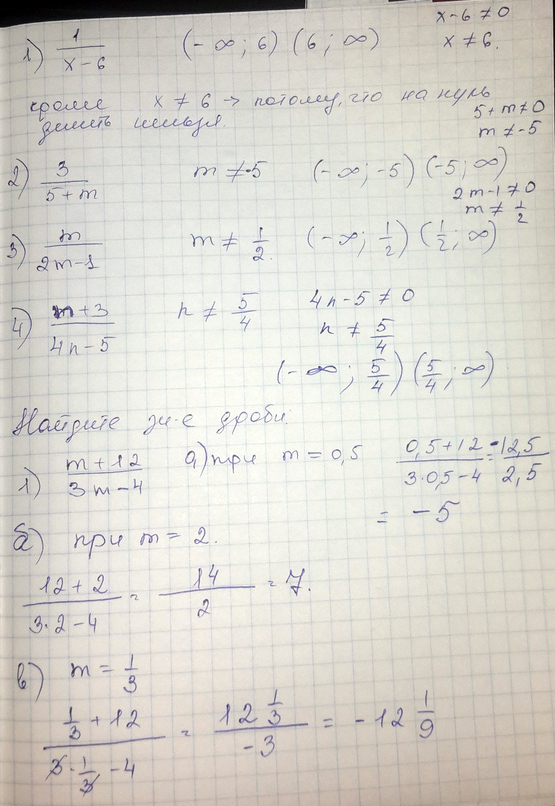 1) 1/(x-6) (-∞; 6) (6; ∞) x-6≠0
x≠6.
кроме x≠6 → потому, что на нуль
делить нельзя.
5+m≠0
m≠-5
2) 3/(5+m) m≠-5 (-∞; -5) (-5; ∞)
2m-1≠0
m≠1/2
3) m/(2m-1) m≠1/2. (-∞; 1/2) (1/2; ∞)
4) m+3/(4n-5) n≠5/4 4n-5≠0
n≠5/4
(-∞; 5/4) (5/4; ∞)
Найдите зн-е дроби.
1) (m+12)/(3m-4) а) при m=0,5 (0,5+12)/(3·0,5-4) = -12,5/2,5
= -5
б) при m=2.
(12+2)/(3·2-4) = 14/2 = 7.
в) m=1/3
(1/3+12)/(3·1/3-4) = 12 1/3/(-3) = -12 1/9